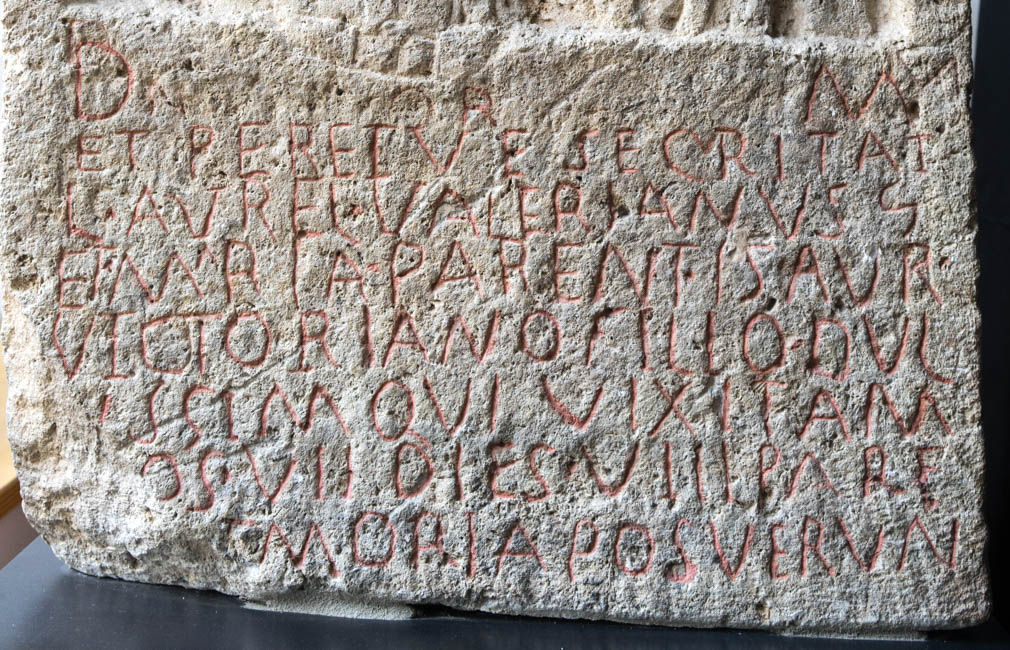 D M
ET PERPETVE SECVRITAT
L AVREL VALERIANVS S
ET MARIA PARENTIS AVR
VICTORIANO FILIO DVL
ISSIM QVI VIXIT AM
OS VII DIES VIII PARE
MORIA POSVERVN